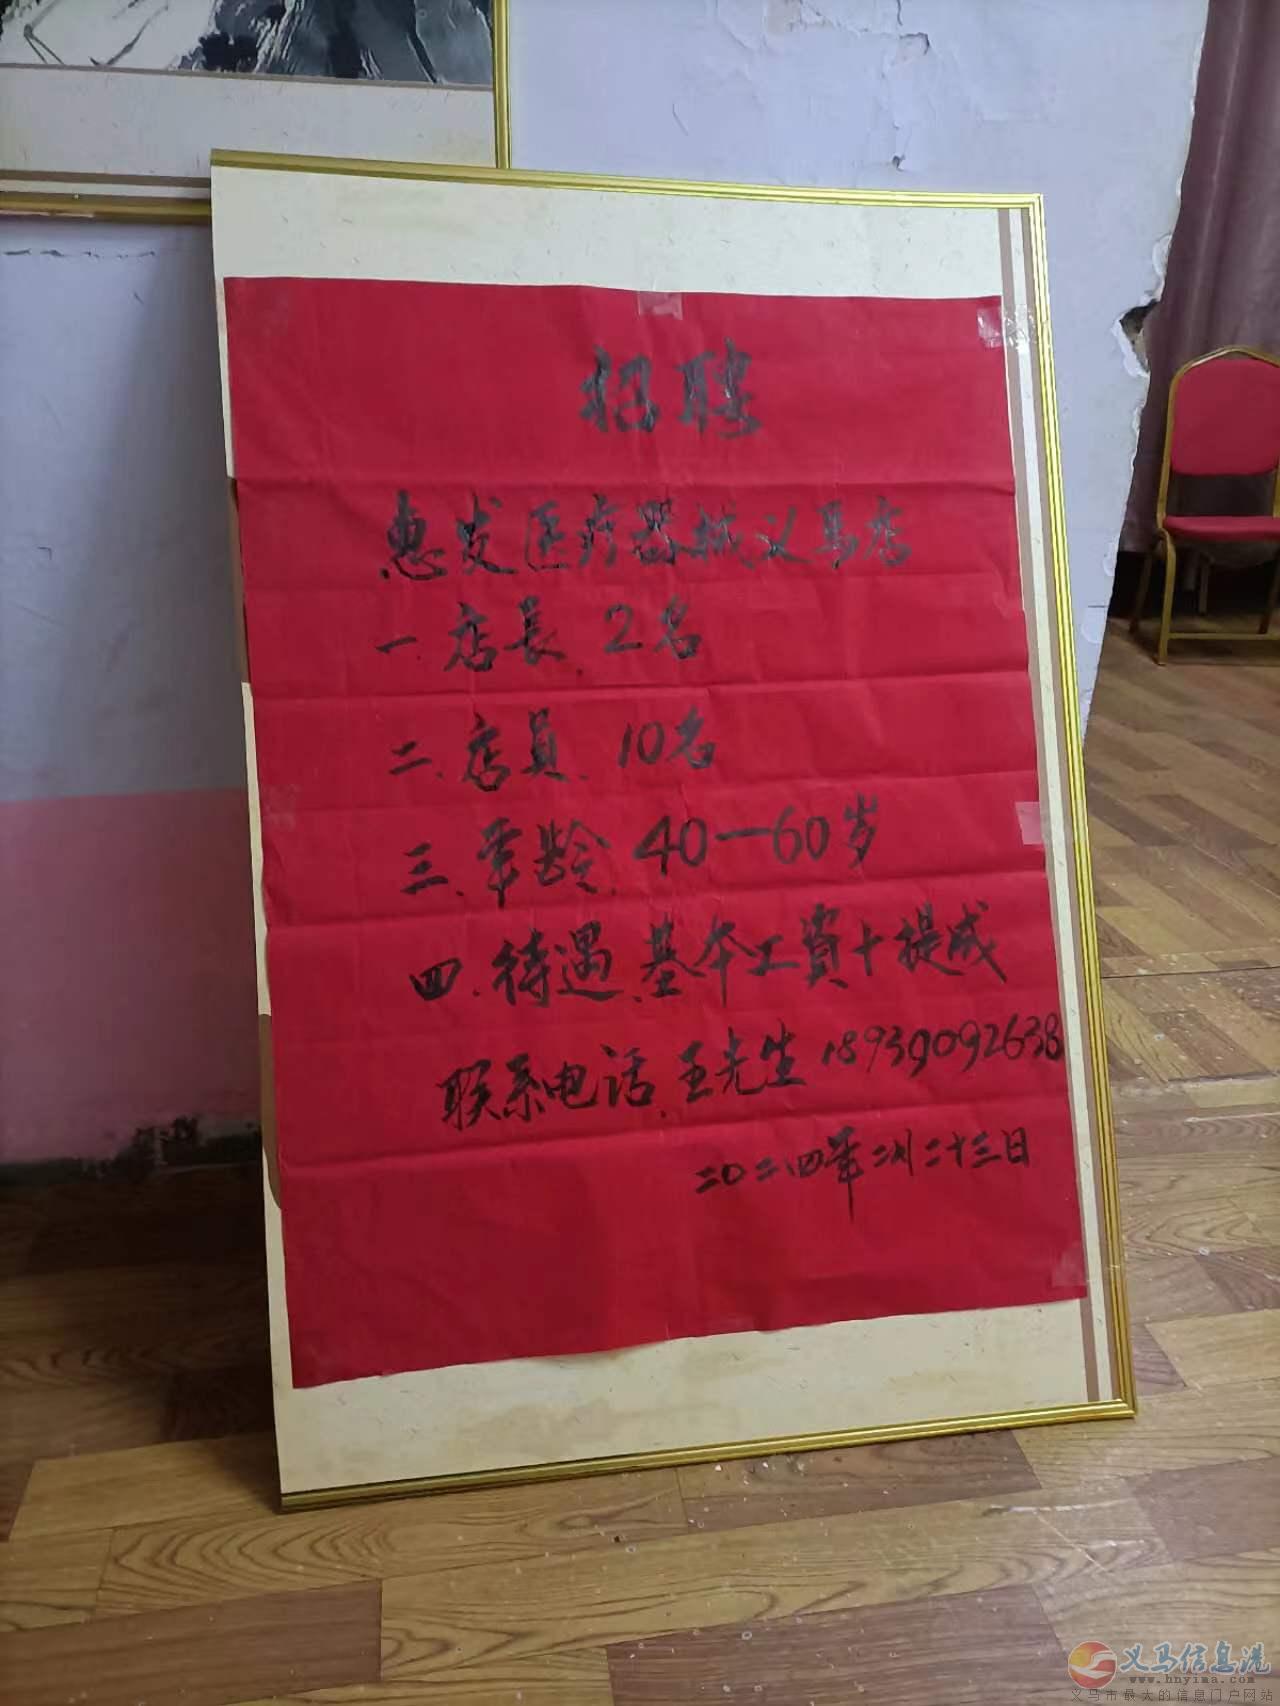 招聘
惠发医疗器械义马店
一.店長.2名
二.店員.10名
三.年龄.40—60岁
四.待遇.基本工資+提成
联系电话.王先生18939092638
二〇二四年二月二十三日
义马信息港
www.hnyima.com
义马市最大的信息门户网站